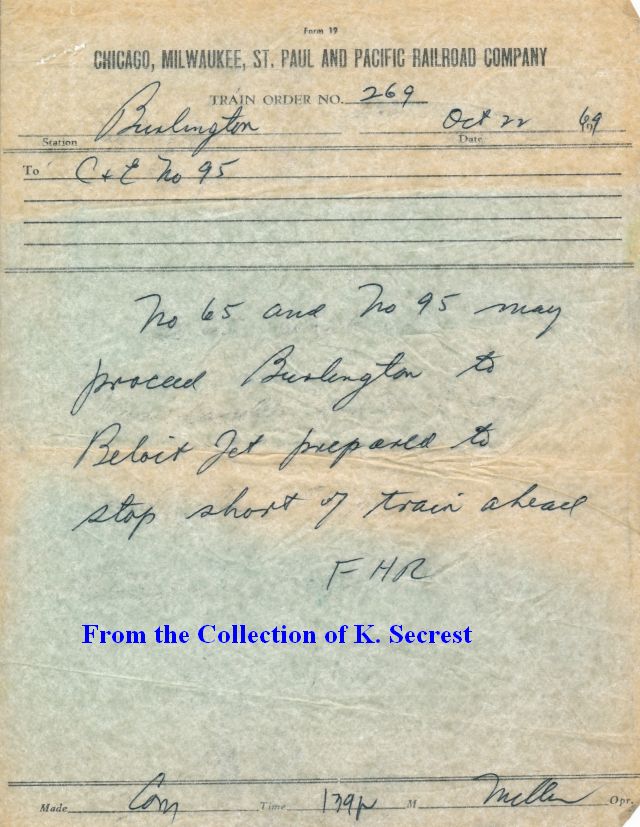 Form 19
CHICAGO, MILWAUKEE, ST. PAUL AND PACIFIC RAILROAD COMPANY
TRAIN ORDER NO. 269
Burlington Oct 22 1969
Station Date
To C & E No 95
No 65 and No 95 may
proceed Burlington to
Beloit Jct prepared to
stop short of train ahead
FHR
From the Collection of K. Secrest
Made Com Time 139p M Miller Opr.